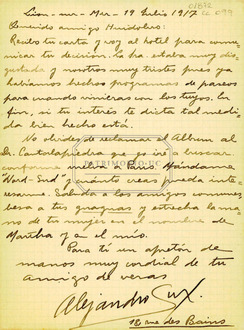 01872
cc 099
Lion-sur-Mer - 19 Julio 1917
Querido amigo Huidobro:
Recibí tu carta y voy al hotel para comu-
nicar tu decisión. La he estaba muy dis-
gustada y nosotros muy tristes pues ya
habíamos hechos programas de paseos
para cuando vinieras con los tuyos. En
fin, si tu interés te dicta tal medi-
da bien hecho está.
No olvides de reclamar el Album al
Dr. que yo iré a buscar
conforme vuelva a París. Mándame
"Nord-Sud" y cuanto creas pueda inte-
resarme. Saluda a los amigos comunes
besa a tus guaguas y estrecha la ma-
no de tu mujer en el nombre de
Martha y a el mío.
Para tí un apretón de
manos muy cordial de tu
amigo de veras
Alejandro Sux.
18 rue des Bains
PATRIMONIO UC